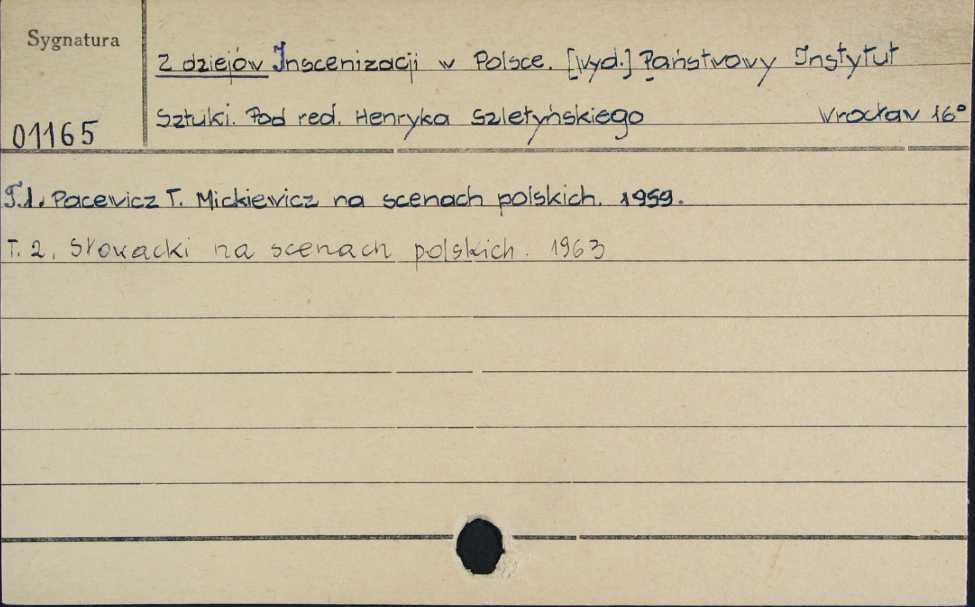 Sygnatura
Z dziejów Inscenizacji w Polsce. [Wyd.] Państwowy Instytut
Sztuki. Pod red. Henryka Szletyńskiego Wrocław 16°
01165
T.1. Pacewicz T. Mickiewicz na scenach polskich. 1959.
T. 2. Słowacki na scenach polskich. 1963